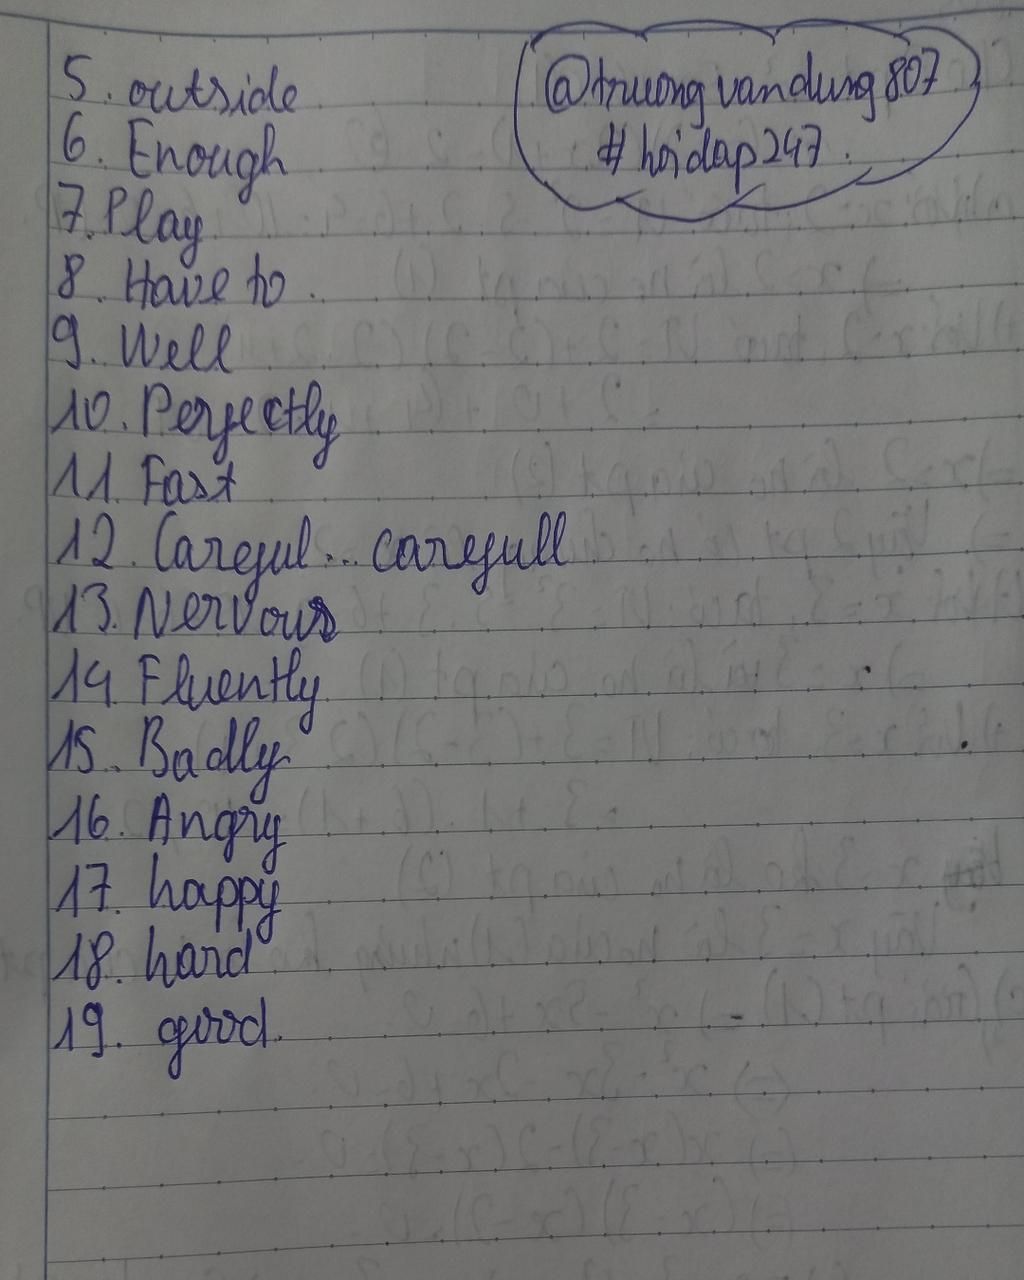 5. outside
@truongvandung807
#hoidap247.
6. Enough
7. Play
8. Have to.
9. Well
10. Perfectly
11. Fast
12. Careful... carefull
13. Nervous
14 Fluently
15. Badly
16. Angry
17. happy
18. hard
19. good.